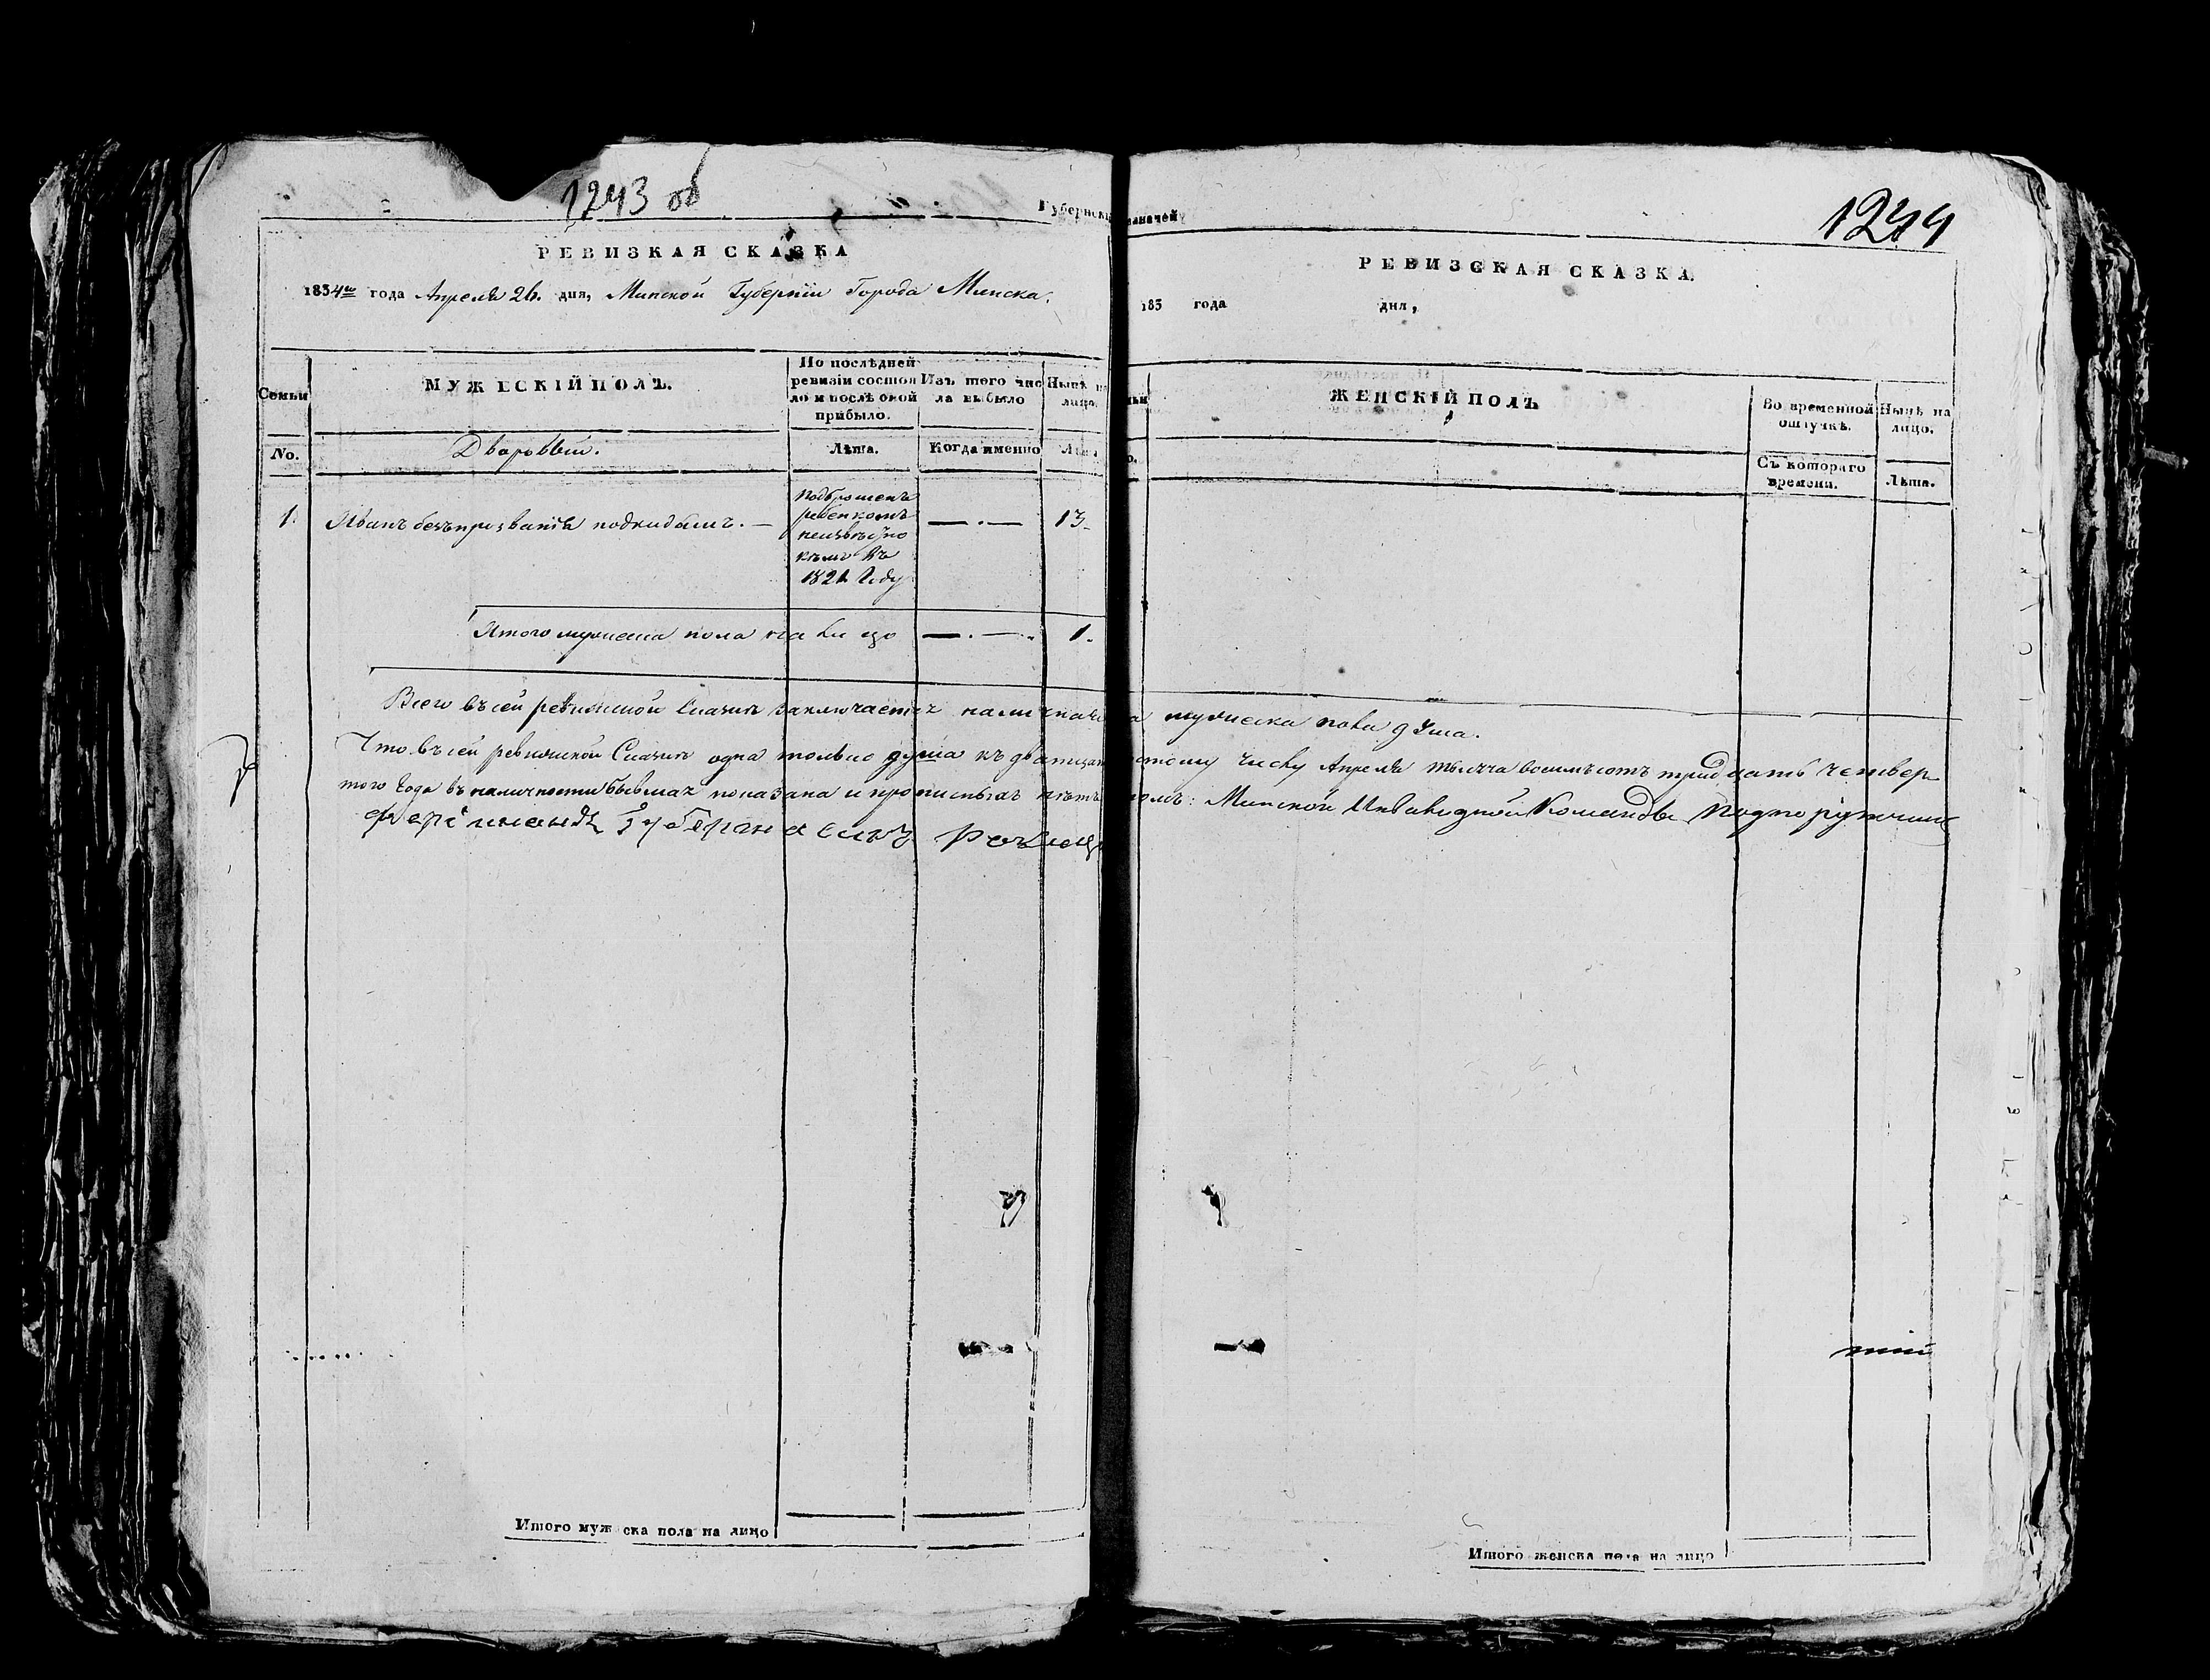 1243 об
Губернскі
РЕВИЗКАЯ СКАЗКА
1834го года Апреля 26. дня, Минской Губерніи Города Минска.
Семьи
МУЖЕСКІЙ ПОЛЪ.
По послѣдней ревизіи состоя
ло и послѣ оной
прибыло.
Изъ того чис
ла выбыло
Нынѣ на
лицо.
No.
Дворовый.
Лѣта.
Когда именно
Лѣта
1. Иванъ безъпрозванія подкидышъ. —
Подброшенъ
ребенкомъ
неизвѣстно
кѣмъ въ
1821 Году
— . —
13
Итого мужеска пола на лицо — . — 1.
Всего въ сей ревизской Сказкѣ заключается налична
Что въ сей ревизской Сказкѣ одна только душа къ двадцат
того Года въ наличности бывшая показана и прописныхъ нѣтъ
1244
азначей
РЕВИЗСКАЯ СКАЗКА.
183 года дня,
ьи
ЖЕНСКІЙ ПОЛЪ
Во временной
отлучкѣ.
Нынѣ на
лицо.
о.
Съ котораго
времени.
Лѣта.
а мужеска пола душа.
стому Числу Апреля тысяча восемьсотъ тридцать четвер
томъ: Минской Инвалидной Команды Подпоручикъ
Итого мужеска пола на лицо
Итого женска пола на лицо